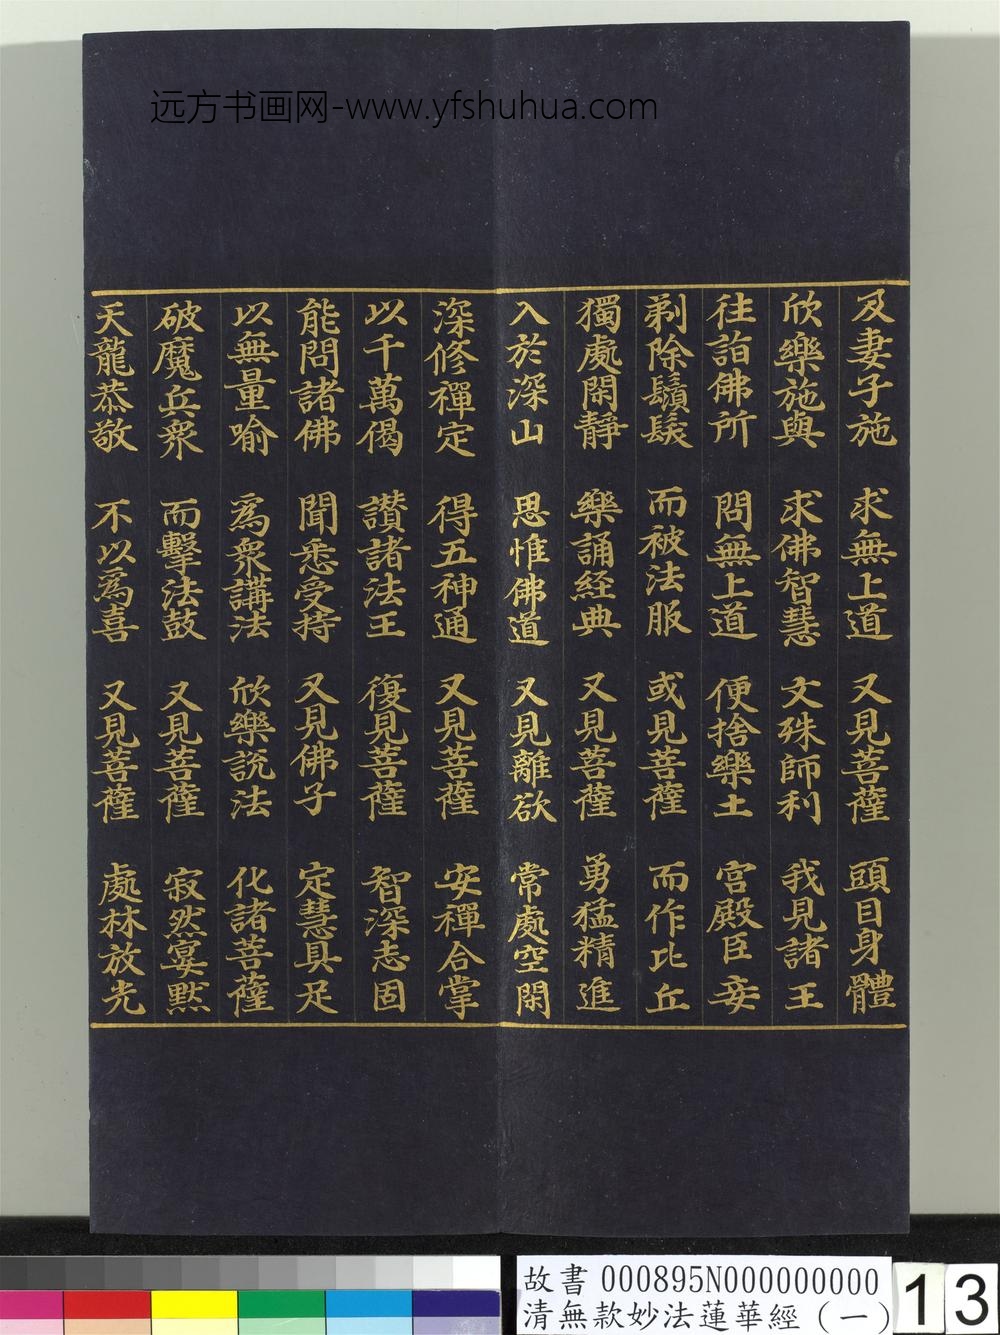 远方书画网-www.yfshuhua.com
及妻子施 求無上道 又見菩薩 頭目身體
欣樂施與 求佛智慧 文殊師利 我見諸王
往詣佛所 問無上道 便捨樂土 宮殿臣妾
剃除鬚髮 而被法服 或見菩薩 而作比丘
獨處閑靜 樂誦經典 又見菩薩 勇猛精進
入於深山 思惟佛道 又見離欲 常處空閑
深修禪定 得五神通 又見菩薩 安禪合掌
以千萬偈 讚諸法王 復見菩薩 智深志固
能問諸佛 聞悉受持 又見佛子 定慧具足
以無量喻 為眾講法 欣樂說法 化諸菩薩
破魔兵眾 而擊法鼓 又見菩薩 寂然宴默
天龍恭敬 不以為喜 又見菩薩 處林放光
故書 000895N000000000
清無款妙法蓮華經(一)
13